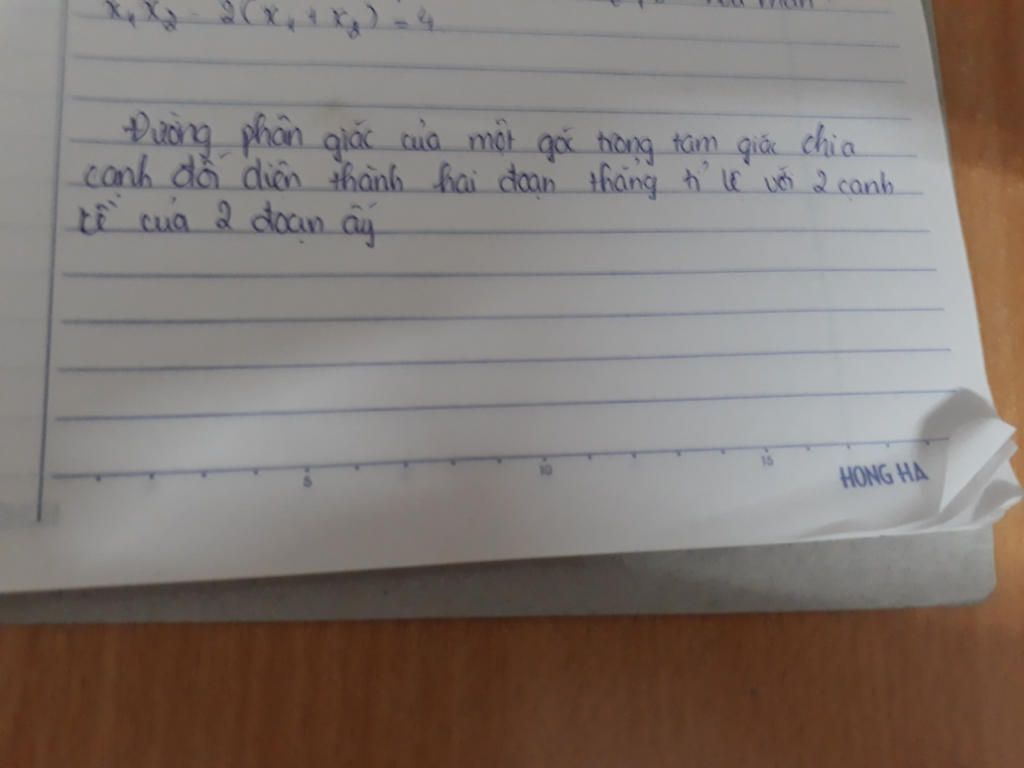 x₁x₂ - 2(x₁ + x₂) = 4
Đường phân giác của một góc trong tam giác chia
cạnh đối diện thành hai đoạn thẳng tỉ lệ với 2 cạnh
kề của 2 đoạn ấy
5 10 15
HONG HA